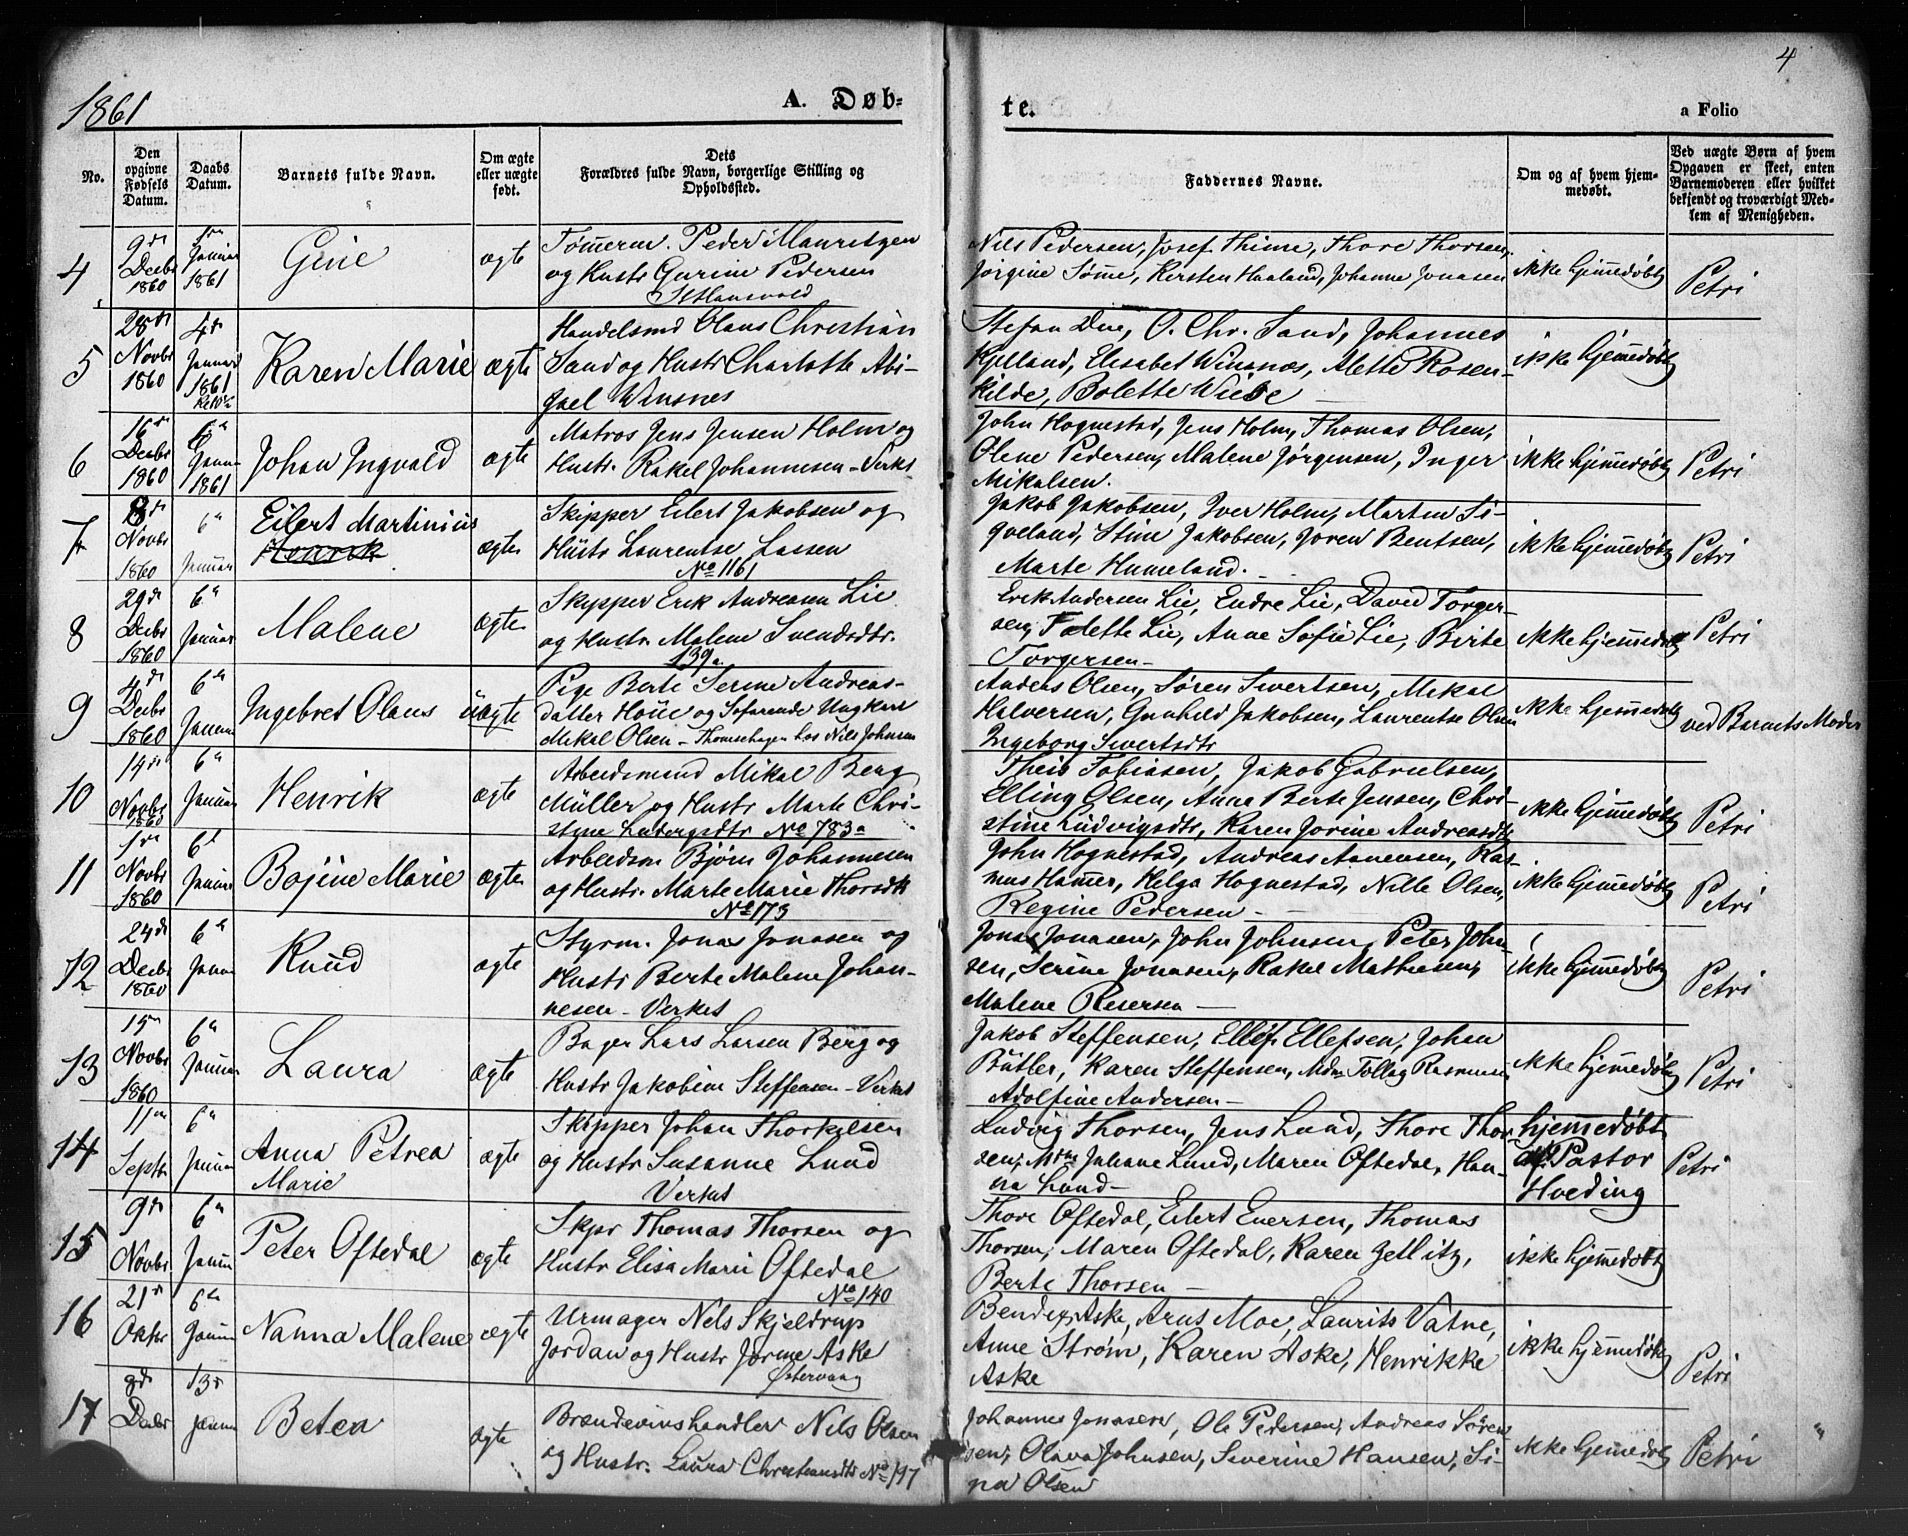 1861
A. Døb-
te.
4
a Folio
No.
Den opgivne Fødsels Datum.
Daabs Datum.
Barnets fulde Navn.
Om ægte eller uægte født.
Dets Forældres fulde Navn, borgerlige Stilling og Opholdssted.
Faddernes Navne.
Om og af hvem hjemmedøbt.
Ved uægte Børn af hvem Opgaven er skeet, enten Barnemoderen eller hvilket bekjendt og troværdigt Medlem af Menigheden.
4
9de Decbr 1860
1ste Januar 1861
Gine
ægte
Tømerm. Peder Mauritzen
og Hustr Gurine Pedersen
St Hansvold
Nils Pedersen, Josef Thime, Thore Thorsen,
Jørgine Sømme, Kersten Haaland, Johanne Jonasen
ikke hjemedøbt
Petri
5
28de Novbr 1860
4de Januar 1861
Karen Marie
ægte
Handelsmd Olaus Christian
Sand og Hustr Charlotte Abi-
gael Winsnes
Stefan Due, O. Chr. Sand, Johannes
Kjelland, Elisabet Winsnæs, Alette Rosen-
kilde, Bolette Wiese
ikke hjemedøbt
6
16de Decbr 1860
6te Januar 1861
Johan Ingvald
ægte
Matros Jens Jensen Holm og
Hustr. Rakel Johannesen - Verket
John Hognestad, Jens Holm, Thomas Olsen,
Olene Pedersen, Malene Jørgensen, Inger
Mikalsen.
ikke hjemedøbt
Petri
7
8de Novbr 1860
6te Januar
Eilert Martinius
Henrik
ægte
Skipper Eilert Jakobsen og
Hustr Laurentse Lassen
No 1161
Jakob Jakobsen, Iver Holm, Marten Si-
gveland, Stine Jakobsen, Joren Bentsen,
Marte Humeland.
ikke hjemedøbt
Petri
8
29de Decbr 1860
6te Januar
Malene
ægte
Skipper Erik Andreasen Lie
og Hustr. Malene Svendsdtr.
139a
Erik Andersen Lie, Endre Lie, David Torger-
sen, Tolette Lie, Anne Sofie Lie, Birte
Torgersen
ikke hjemmedøbt
Petri
9
4de Decbr 1860
6te Januar
Ingebret Olaus
uægte
Pige Berte Serine Andreas-
datter Houe og Søfarende Ungkarl
Mikal Olsen - Thomsehagen hos Nils Johnsen
Anders Olsen, Søren Sivertsen, Mikal
Halversen, Gunhild Jakobsen, Laurentse Olsen
Ingeborg Sivertsdtr
ikke hjemmedøbt
ved Barnets Moder
10
14de Novbr 1860
6te Januar
Henrik
ægte
Arbeidsmand Mikal Berg
Müller og Hustr Marte Chri-
styne Ludvigsdtr No 783a
Theis Tobiasen, Jakob Gabrielsen,
Elling Olsen, Anna Berte Jensen, Chri-
stine Ludvigsdtr, Karen Jorine Andreasdtr
ikke hjemedøbt
Petri
11
1ste Novbr 1860
6te Januar
Bojine Marie
ægte
Arbeidsm Bjørn Johannesen
og Hustr. Marte Marie Thorsdtr
No 173
John Hognestad, Andreas Aanensen, Ras-
mus Hamer, Helga Hognestad, Nille Olsen,
Regine Pedersen
ikke hjemedøbt
Petri
12
24de Decbr 1860
6te Januar
Knud
ægte
Styrm. Jonas Jonasen og
Hustr Berte Malene Johan-
nesen - Verket
Jonas Jonasen, John Johnsen, Peter John-
sen, Serine Jonasen, Rakel Mathiesen,
Malene
ikke hjemedøbt
Petri
13
15de Novbr 1860
6te Januar
Laura
ægte
Bager Lars Larsen Berg og
Hustr Jakobine Steffensen - Verket
Jakob Steffensen, Ellef Ellefsen, Johan
Bütler, Karen Steffensen, Mdm Tollag Rasmusen
Adolfine Andersen
ikke hjemedøbt
Petri
14
11te Septr
6te Januar
Anna Petrea
Marie
ægte
Skipper Johan Thorkilsen
og Hustr Susanne Lund
Verket
Ludvig Thorsen, Jens Lund, Thore Thor-
sen, Mdm Juliane Lund, Maren Oftedal, Han-
na Lund
hjemedøbt
af Pastor
Hveding
Petri
15
9de Novbr
6te Januar
Peter Oftedal
ægte
Skpr Thomas Thorsen og
Hustr Elisa Marie Oftedal
No 140
Thore Oftedal, Eilert Eversen, Thomas
Thorsen, Maren Oftedal, Karen Zetlitz,
Berte Thorsen
ikke hjemedøbt
16
21de Oktbr
6te Januar
Nanna Malene
ægte
Urmager Nels Skjeldrup
Jordan og Hustr Jorine Aske
Østervaag
Bendix Aske, Arns Moe, Laurits Vatne,
Anne Strøm, Karen Aske, Henrikke
Aske
ikke hjemmedøbt
Petri
17
9de Decbr
13de Januar
Betea
ægte
Brændevinshandler Nils Olsen
og Hustr. Laura Christiansdtr No 197
Johannes Jonasen, Ole Pedersen, Andreas Søren-
sen, Olava Johnsen, Severine Hansen, Si-
na Olsen
ikke hjemedøbt
Petri